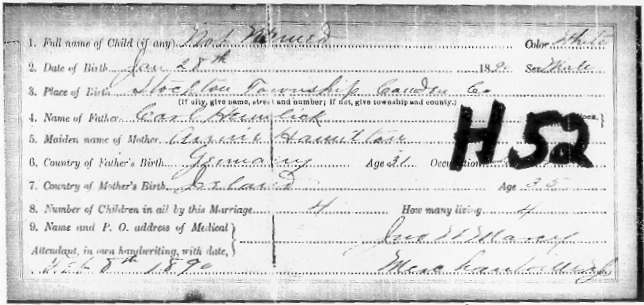 1. Full name of Child (if any) Not Named Color White
2. Date of Birth Jan 28th 1890 Sex Male
3. Place of Birth Stockton Township Camden Co
(If city, give name, street and number; if not, give township and county.)
4. Name of Father Carl Hemlick
5. Maiden name of Mother Annie Hamilton
6. Country of Father's Birth Germany Age 31 Occupation
H 52
7. Country of Mother's Birth Ireland Age 35
8. Number of Children in all by this Marriage 4 How many living 4
9. Name and P. O. address of Medical Jno
Attendant, in own handwriting, with date, Merchantville N.J.
Feb 8th 1890